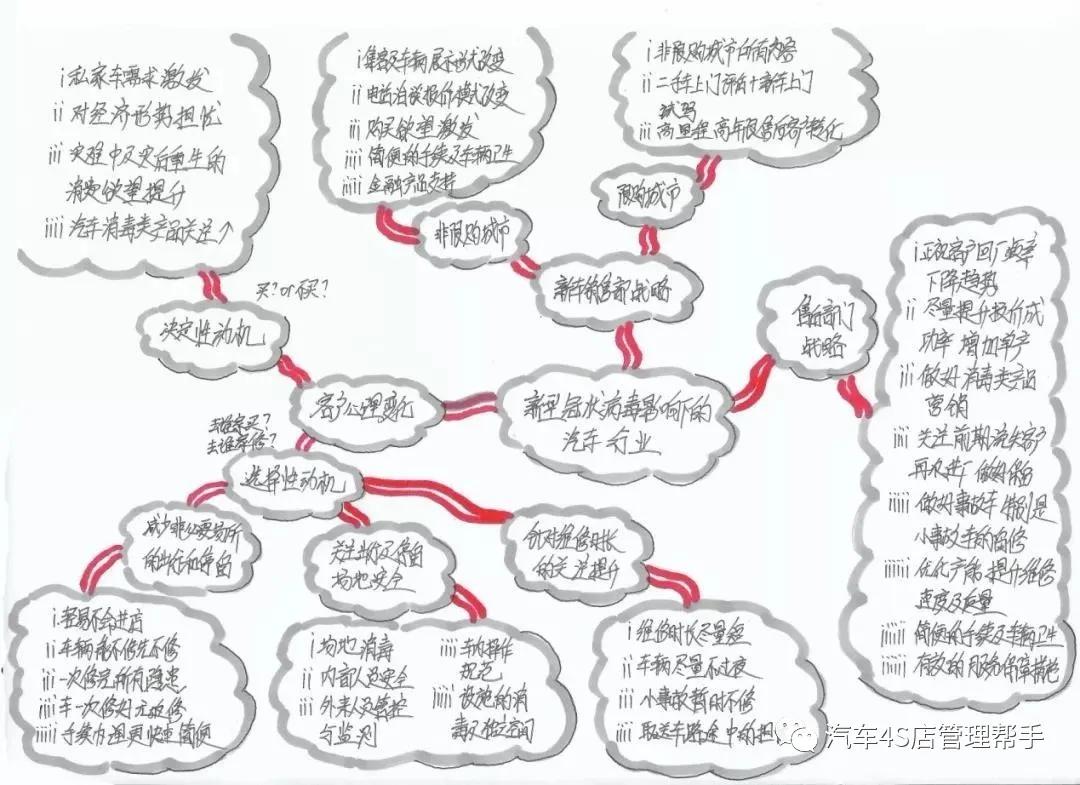 i 私家车需求激发
ii 对经济形势担忧
iii 灾难中及灾后重生的
消费欲望提升
iiii 汽车消毒类产品关注↑
买?or不买?
决定性动机
i 集客及车辆展示方式改变
ii 电话洽谈报价模式改变
iii 购买欲望激发
iiii 简便的手续及车辆卫生
iiiii 金融产品支持
非限购城市
i 非限购城市所有内容
ii 二手车上门评估+新车上门
试驾
iii 高里程 高年限售后客户转化
限购城市
新车销售部战略
售后部门
战略
i 正视客户回厂频率
下降趋势
ii 尽量提升报价成
功率 增加单产
iii 做好消毒类产品
营销
iiii 关注前期流失客户
再次进厂 做好保留
iiiii 做好事故车 特别是
小事故车的留修
iiiiii 优化产能 提升维修
速度及质量
iiiiiii 简便的手续及车辆卫生
iiiiiiii 有效的服务保障措施
客户心理变化
新型冠状病毒影响下的
汽车行业
去谁家买?
去谁家修?
选择性动机
减少非必要场所
的出行和停留
关注出行及停留
场地安全
针对维修时长
的关注提升
i 轻易不会进店
ii 车辆能不修先不修
iii 一次修完所有隐患
iiii 车一次修好无返修
iiiii 手续办理更快更简便
i 场地消毒
ii 内部人员安全
iii 外来人员管控
与监测
iiii 车内操作
规范
iiiii 设施的消
毒及独立空间
i 维修时长尽量短
ii 车辆尽量不过夜
iii 小事故暂时不修
iiii 取送车路途中的担
汽车4S店管理帮手